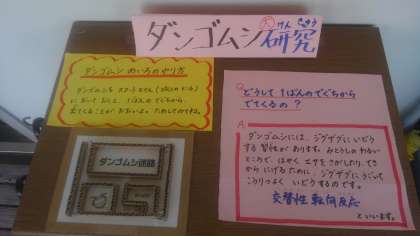 ダンゴムシ大研究
けんきゅう
ダンゴムシ めいろのやり方
ダンゴムシを スタート
において おくと、1ばんのでぐちから
出てくることが おおいよ。ためしてみてね。
ダンゴムシ迷路
Q どうして 1ばんのでぐちから
でてくるの？
A
ダンゴムシには、ジグザグに いどう
する 習性が あります。みとうしの わるい
ところで、はやく エサを さがしたり、てき
から にげるために、ジグザグに うごいて
こうりつよく いどうするのです。
交替性転向反応
といいます。